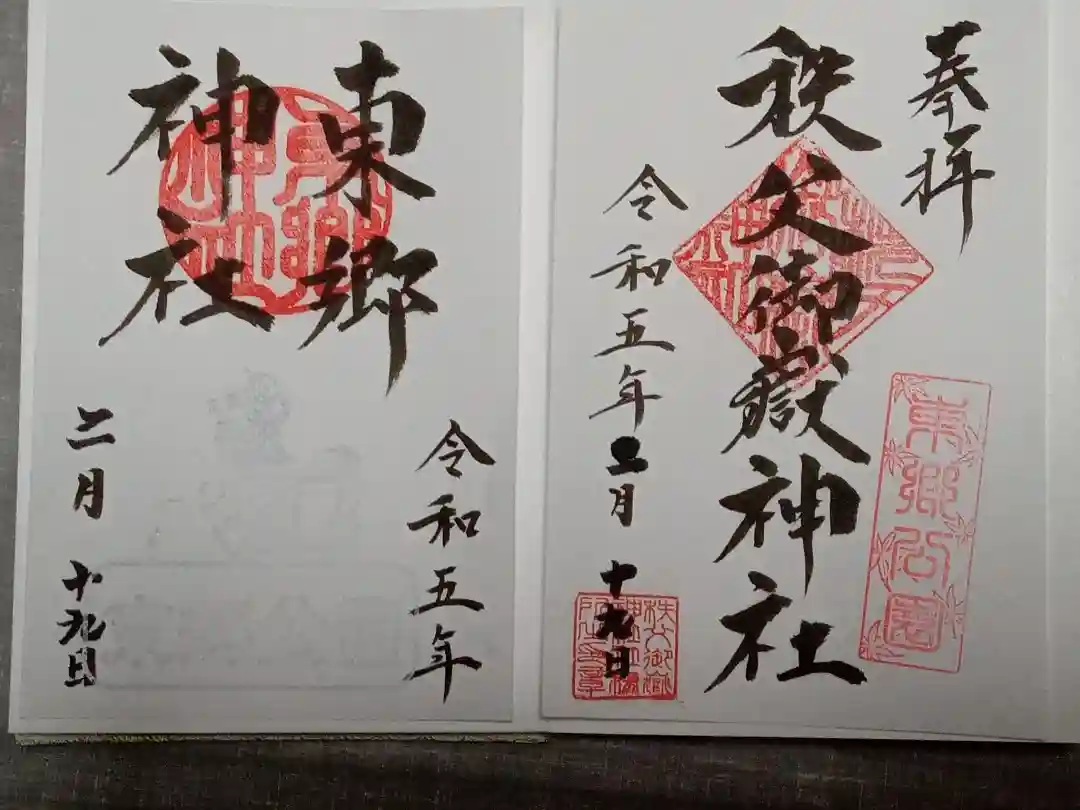 奉拝
秩父御嶽神社
東郷公園
令和五年二月十九日
東郷
神社
令和五年
二月十九日